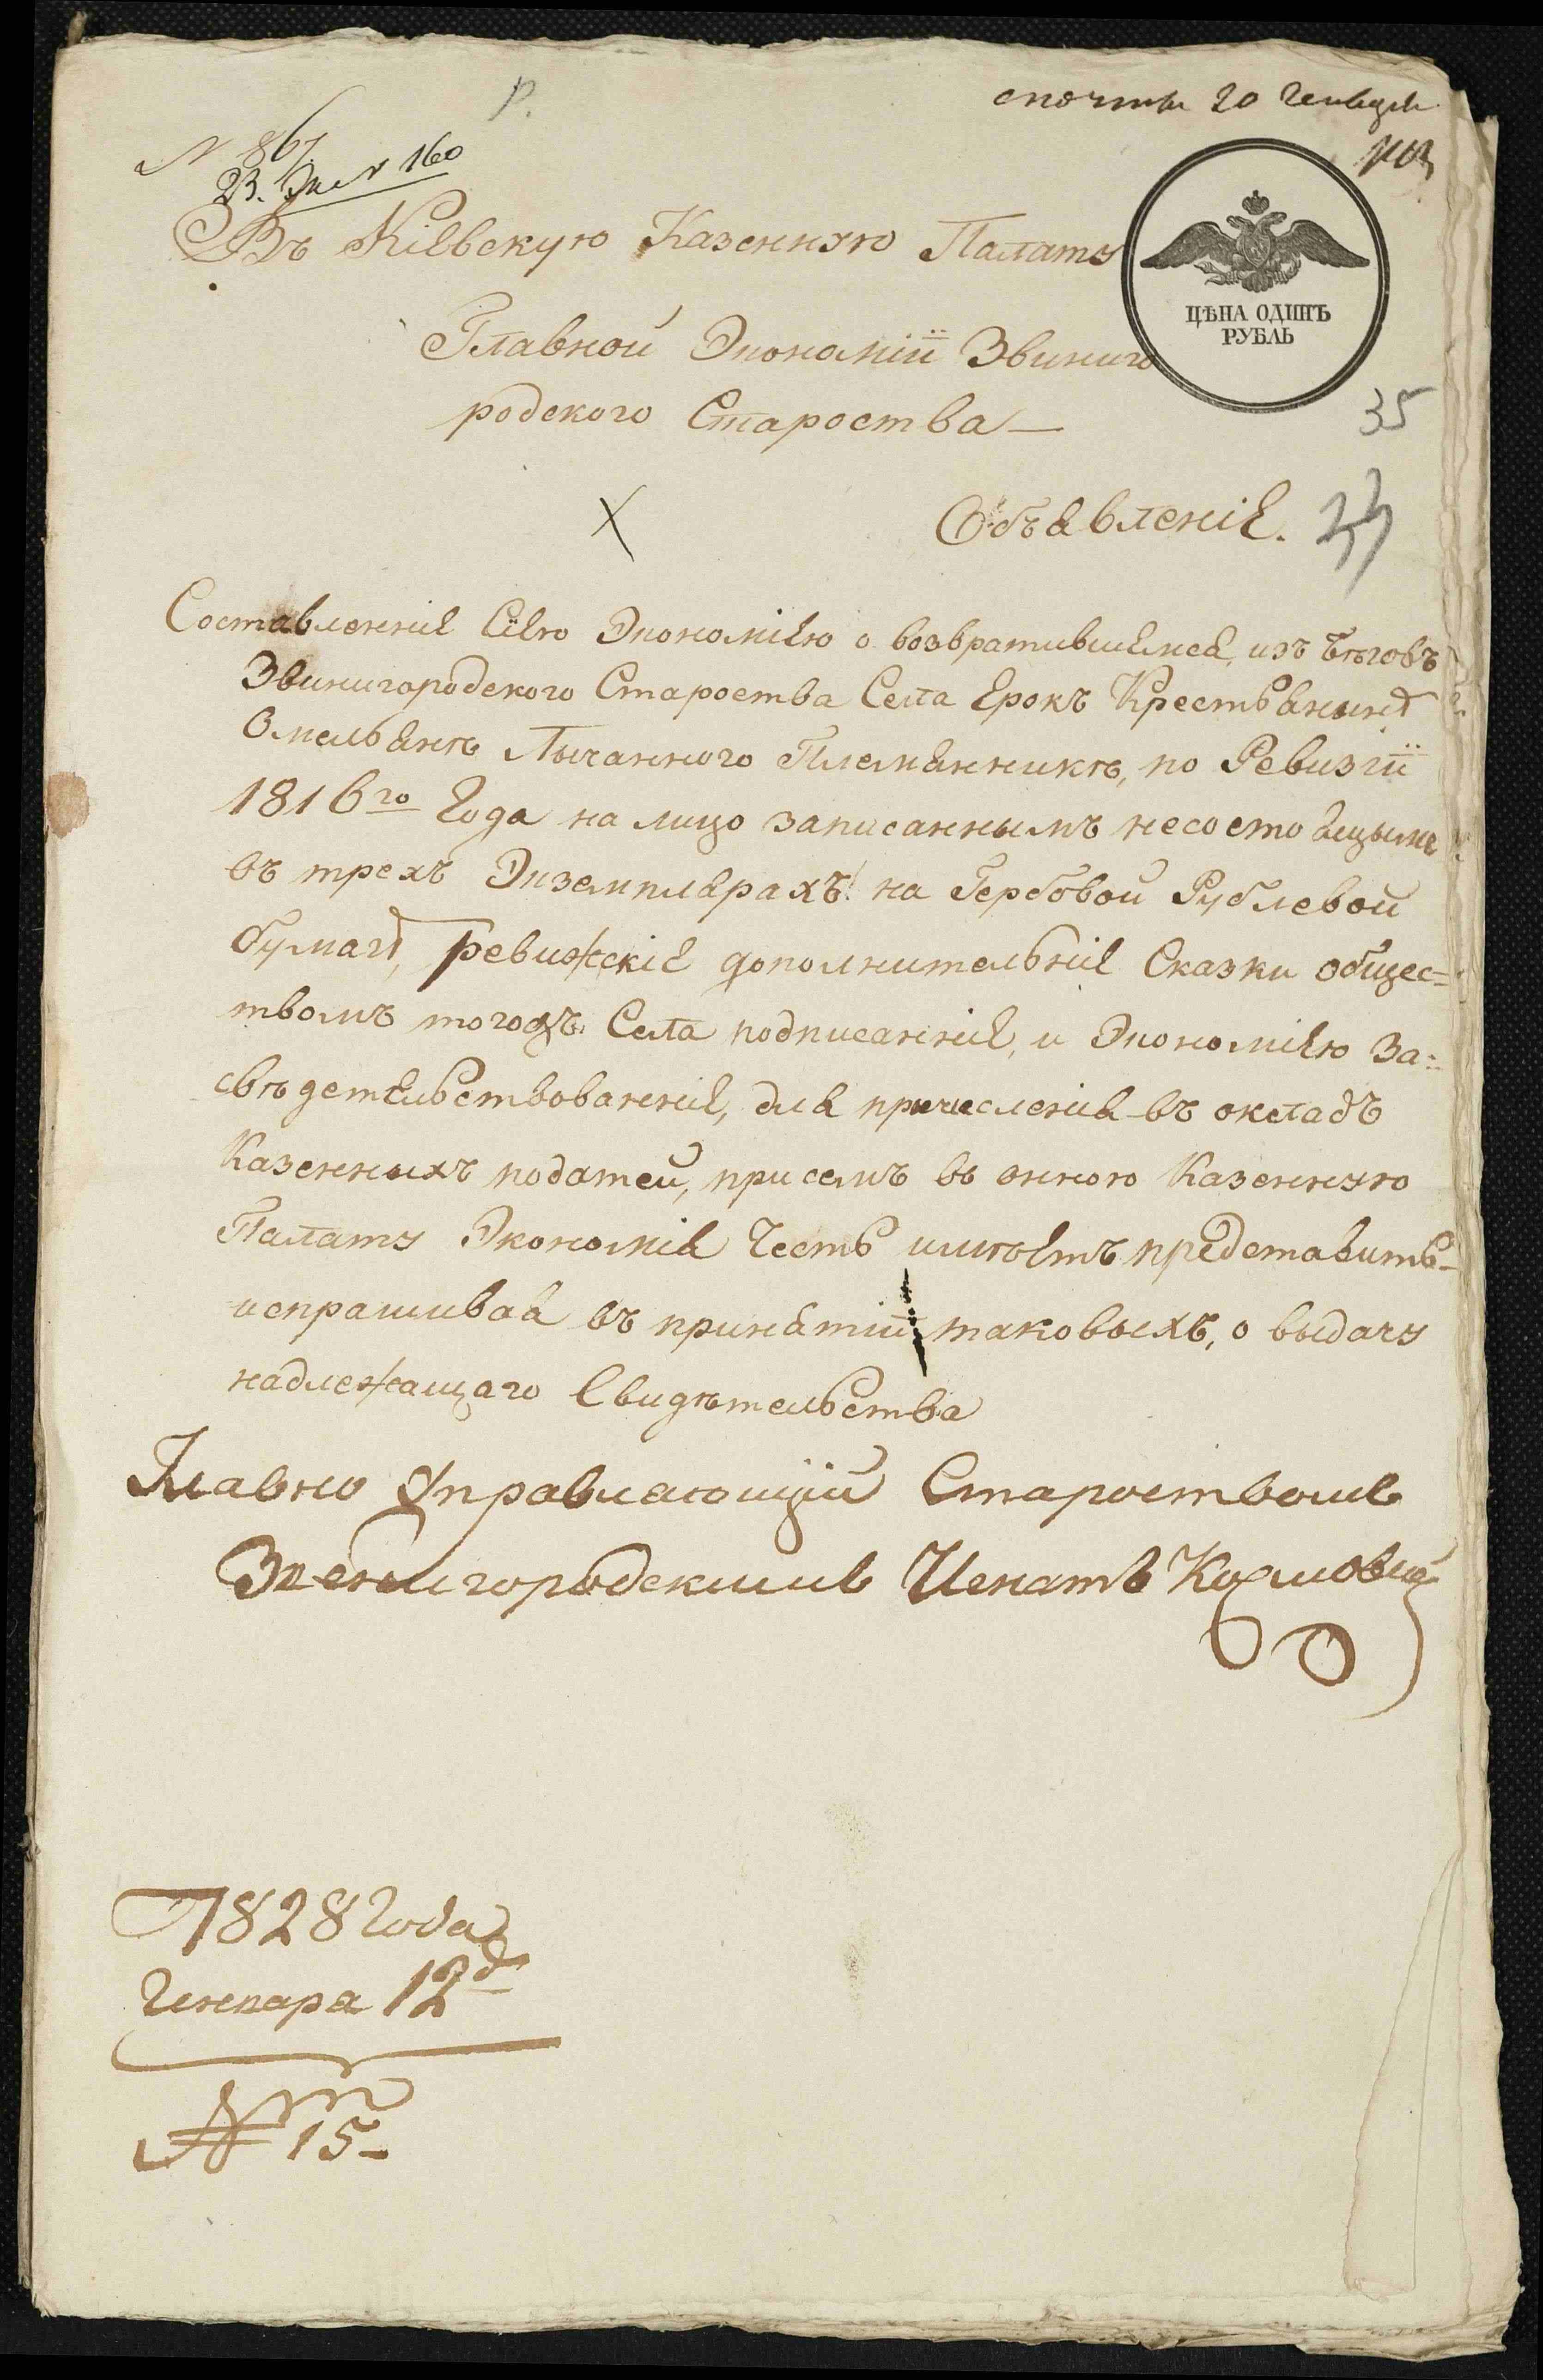 с почты 20 Генваря
N 867
23. Янв 160
Въ Кіевскую Казенную Палату
ЦѢНА ОДИНЪ
РУБЛЬ
Главной Экономіи Звиниго
родского Староства
35
Объявленіе.
33
Составленніе Сіею Экономіею о возвратившемся, изъ бѣговъ
Звинигородского Староства Села Ерокъ Крестьянинѣ
Омельянѣ Лычанного Племянникѣ, по Ревизіи
1816го Года на лицо записаннымъ несостоящымъ
въ трехъ Экземплярахъ на Гербовой Рублевой
бумагѣ, ревижскіе дополнительніе Сказки общес=
твомъ тогожъ Села подписанніе, и Экономіею За=
свѣдетельствованніе, для причисленія въ окладъ
Казенныхъ податей, при семъ въ онною Казенную
Палату Экономія Честь имѣетъ представить
испрашивая въ принятіи таковыхъ, о выдачу
надлежащаго Свидѣтельства
Главно Управляющій Староствомъ
Звенигородскимъ
1828 Года
Генваря 12 д
N 15